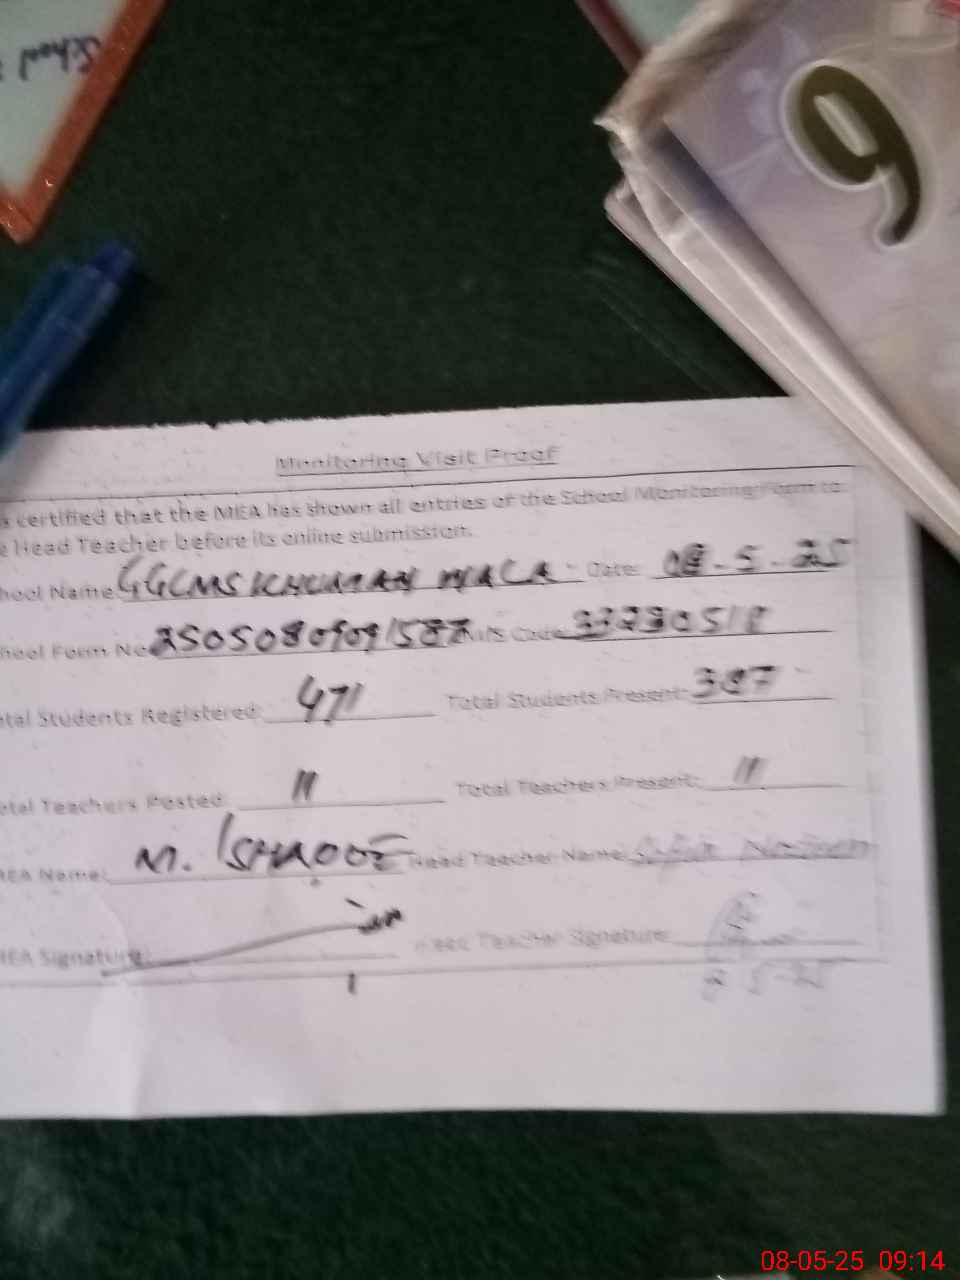 School
9
Monitoring Visit Proof
s certified that the MEA has shown all entries of the School Monitoring Form to
e Head Teacher before its online submission.
hool Name: GGCMS KHURIAN WALA Date: 08-5-25
hool Form No 25050809091587 EMIS Code 33230518
tal Students Registered: 471 Total Students Present: 387
otal Teachers Posted: 11 Total Teachers Present: 11
MEA Name: M. ISHAQUE Head Teacher Name:
MEA Signature: Head Teacher Signature:
8-5-25
08-05-25 09:14